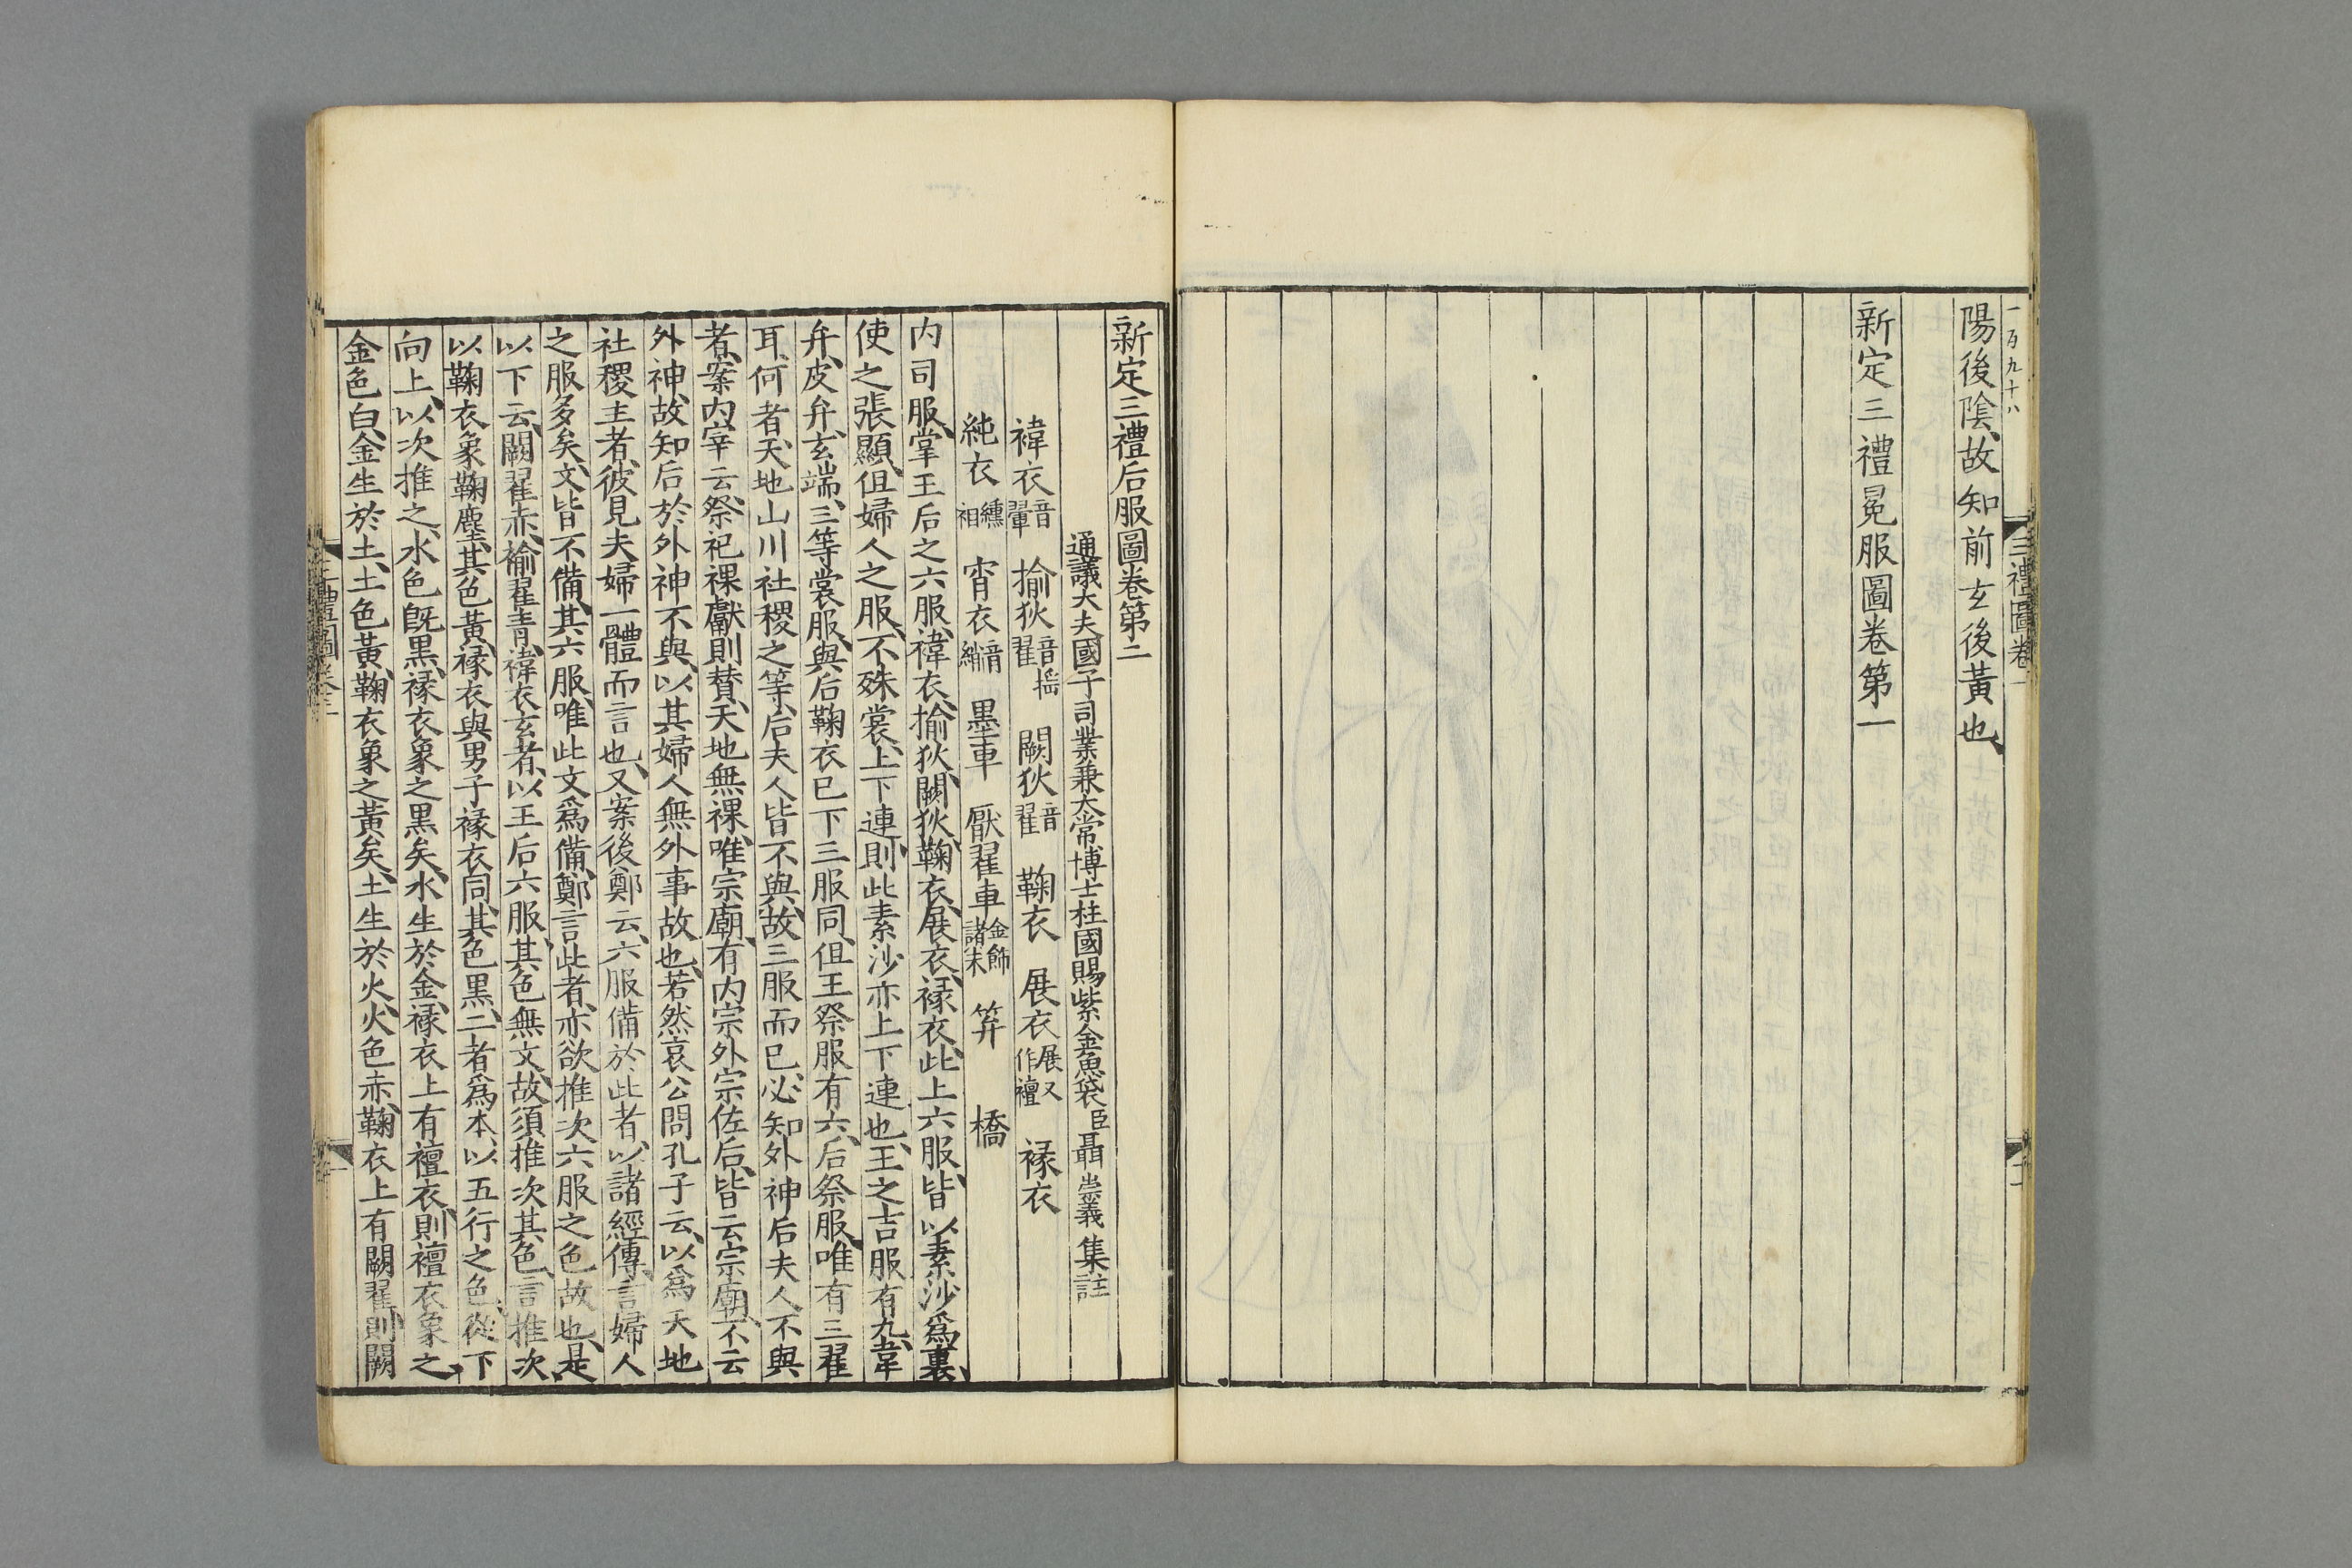 一百九十八
三禮圖卷一
陽後陰、故知前玄後黃也、
新定三禮冕服圖卷第一
新定三禮后服圖卷第二
通議大夫國子司業兼太常博士柱國賜紫金魚袋臣聶崇義集註
褘衣音翬 揄狄音搖翟 闕狄音翟 鞠衣 展衣展又作襢 褖衣
純衣纁袡 宵衣音綃 墨車 厭翟車金飾諸末 笲 橋
内司服、掌王后之六服、褘衣、揄狄、闕狄、鞠衣、展衣、褖衣、此上六服、皆以素沙爲裏、
使之張顯、但婦人之服、不殊裳、上下連、則此素沙亦上下連也、王之吉服有九、韋
弁、皮弁、玄端、三等裳服、與后鞠衣已下三服同、但王祭服有六、后祭服、唯有三翟
耳、何者、天地山川社稷之等、后夫人皆不與、故三服而已、必知外神后夫人不與
者、案内宰云、祭祀祼獻則贊、天地無祼、唯宗廟、有内宗外宗佐后、皆云宗廟、不云
外神、故知后於外神不與、以其婦人無外事故也、若然、哀公問孔子云、以爲天地
社稷主者、彼見夫婦一體而言也、又案後鄭云、六服備於此者、以諸經傳、言婦人
之服多矣、文皆不備、其六服、唯此文爲備、鄭言此者、亦欲推次六服之色故也、是
以下云、闕翟赤、揄翟青、褘衣玄者、以王后六服、其色無文、故須推次其色、言推次
以鞠衣象鞠塵、其色黃、褖衣與男子褖衣同、其色黑、二者爲本、以五行之色、從下
向上、以次推之、水色旣黑、褖衣象之黑矣、水生於金、褖衣上有襢衣、則襢衣象之
金色白、金生於土、土色黃、鞠衣象之黃矣、土生於火、火色赤、鞠衣上有闕翟、則闕
三禮圖卷二
一